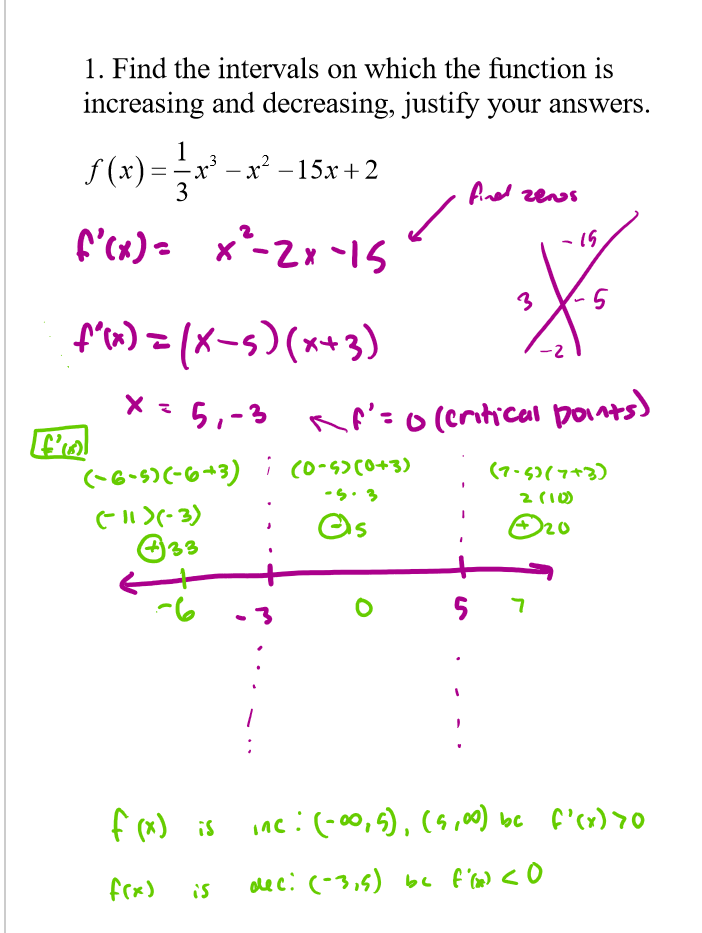 1. Find the intervals on which the function is
increasing and decreasing, justify your answers.
f(x) = 1/3 x³ − x² − 15x + 2
find zeros
f'(x) = x² - 2x - 15
-15
3 -5
-2
f'(x) = (x-5)(x+3)
x = 5, -3 ↖ f' = 0 (critical points)
f'(x)
(-6-5)(-6+3) (0-5)(0+3) (7-5)(7+3)
(-11)(-3) -5·3 2(10)
+33 -15 +20
-6 -3 0 5 7
f(x) is inc: (-∞,5), (5,∞) bc f'(x)>0
f(x) is dec: (-3,5) bc f'(x) < 0